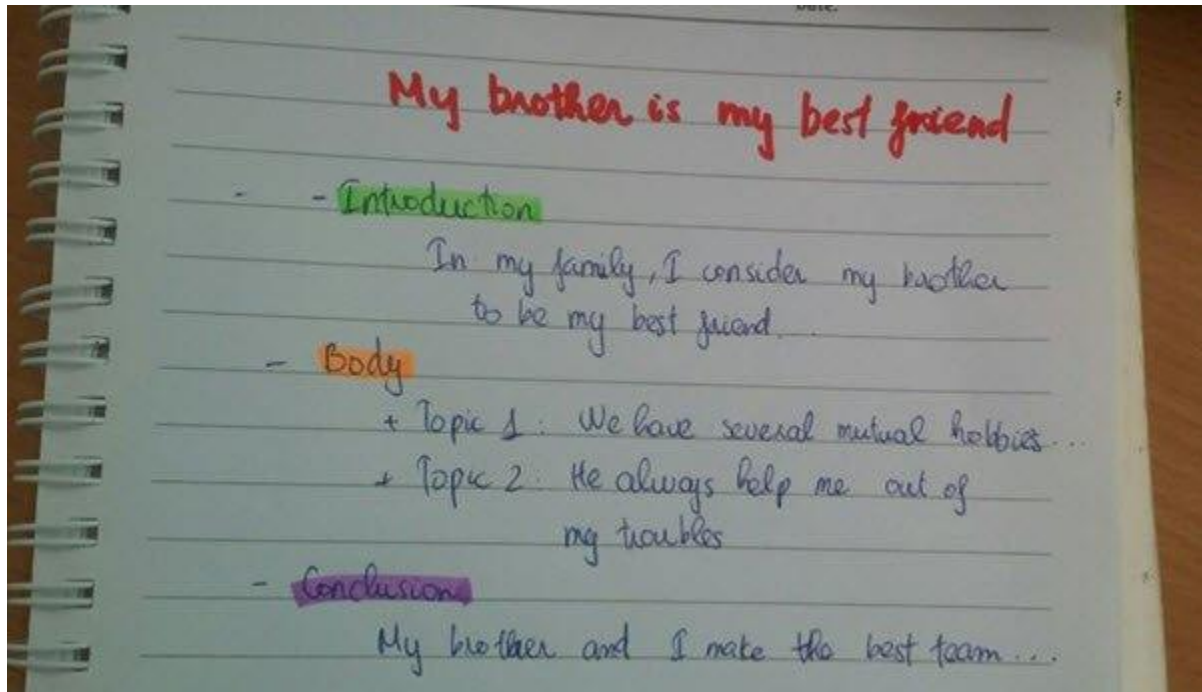 Date:
My brother is my best friend
- - Introduction
In my family, I consider my brother
to be my best friend...
- Body
+ Topic 1: We have several mutual hobbies...
+ Topic 2: He always help me out of
my troubles
- Conclusion
My brother and I make the best team...